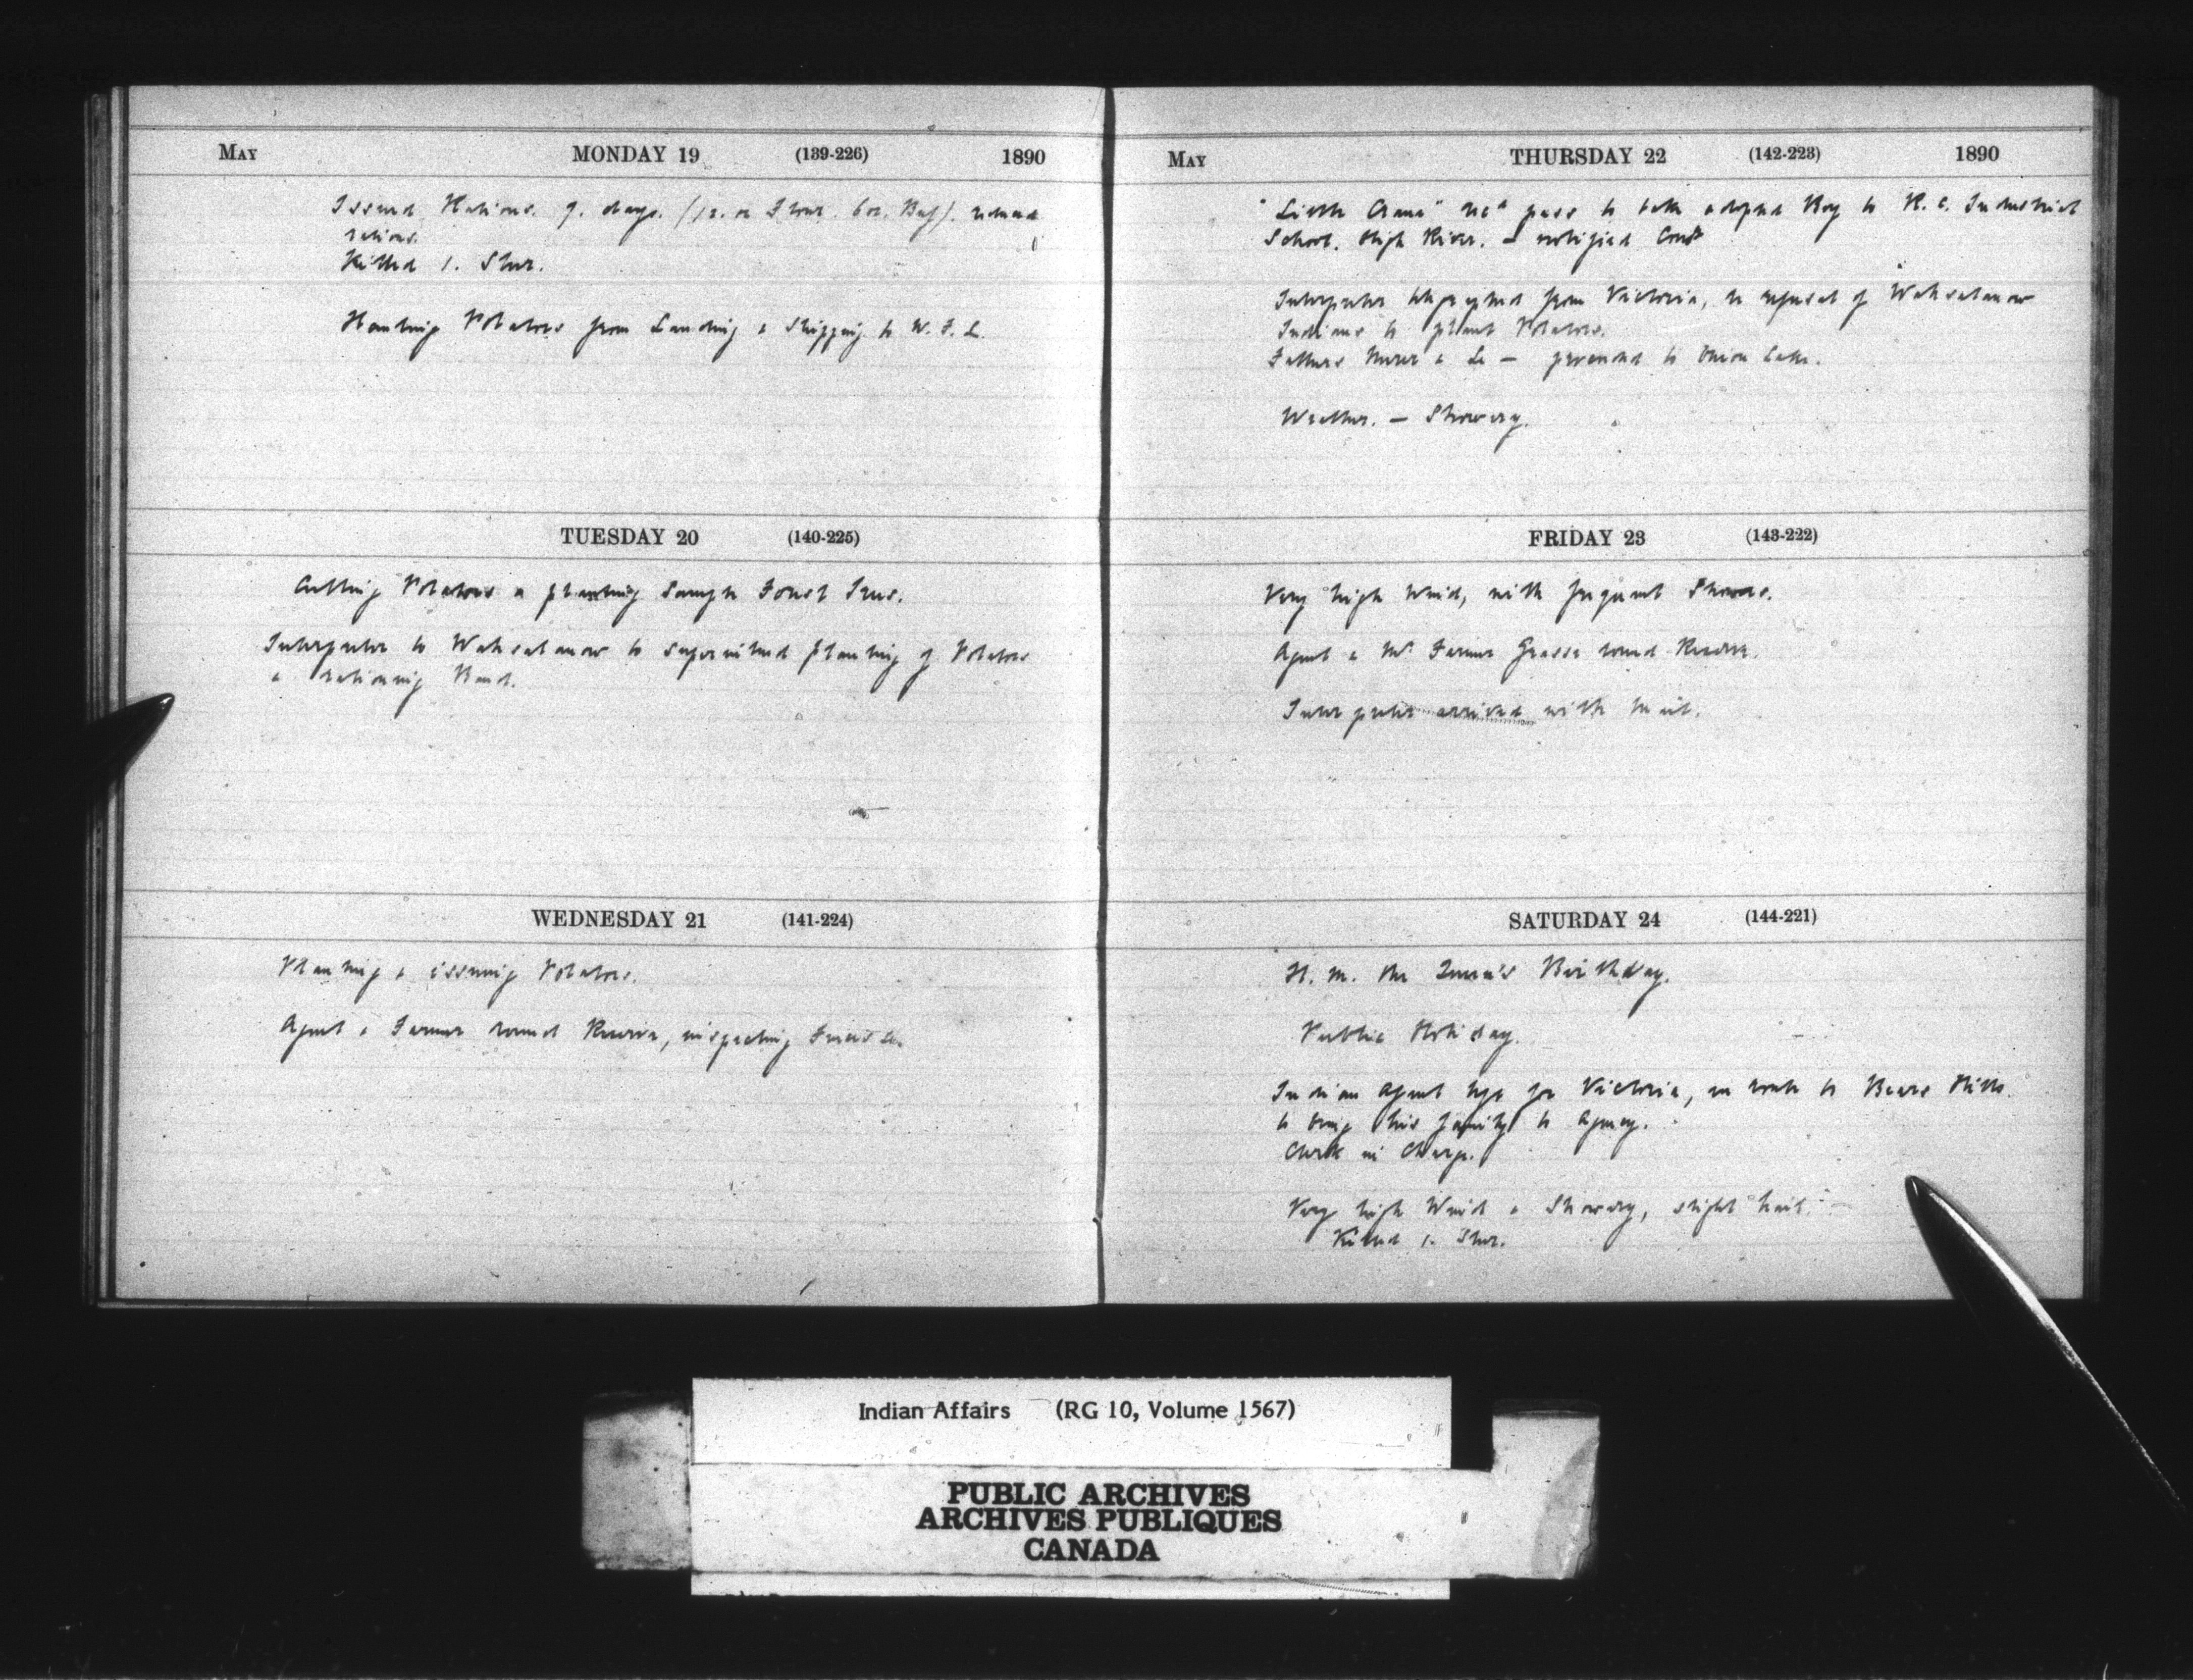 May MONDAY 19 (139-226) 1890
Issued Rations. 7. days. (12. oz Flour. 6 oz. Beef). reduced
rations.
Killed 1. Steer.
Hauling Potatoes from Landing & Shipping to W. F. L.
TUESDAY 20 (140-225)
Cutting Potatoes & planting Sample Forest Trees.
Interpreter to Wahsatanow to superintend planting of Potatoes
& rationing Band.
WEDNESDAY 21 (141-224)
Planting & issuing Potatoes.
Agent & Farmer round Reserve, inspecting Fences &c.
May THURSDAY 22 (142-223) 1890
"Little Crane" recd pass to take adopted Boy to R. C. Industrial
School. High River. — notified
Interpreter telegraphed from Victoria, re refusal of Wahsatanow
Indians to plant Potatoes.
Fathers & Le — proceeded to Onion Lake.
Weather. — Showery.
FRIDAY 23 (143-222)
Very high Wind, with frequent Showers.
Agent & Mr Farmer Grasse round Reserve.
Interpreter arrived with Mail.
SATURDAY 24 (144-221)
H. M. the Queen's Birthday.
Public Holiday.
Indian Agent left for Victoria, en route to Bears Hills.
to bring his family to Agency.
Clerk in Charge.
Very high Wind & Showery, slight hail. —
Killed 1. Steer.
Indian Affairs (RG 10, Volume 1567)
PUBLIC ARCHIVES
ARCHIVES PUBLIQUES
CANADA